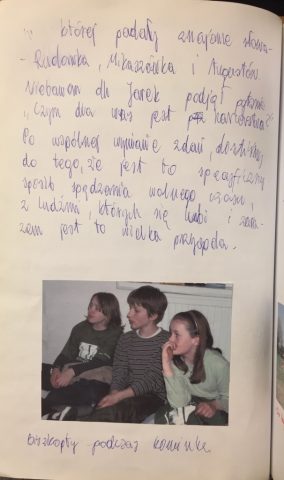 w której padały znajome słowa-
- Rudawka, Mikaszówka i Augustów.
Niebawem dh Jarek podjął pytanie
"Czym dla was jest harcerstwo?"
Po wspólnej wymianie zdań, doszliśmy
do tego, że jest to specyficzny
sposób spędzania wolnego czasu,
z ludźmi, których się lubi i zara-
zem jest to wielka przygoda.
Biszkopty podczas kominka.